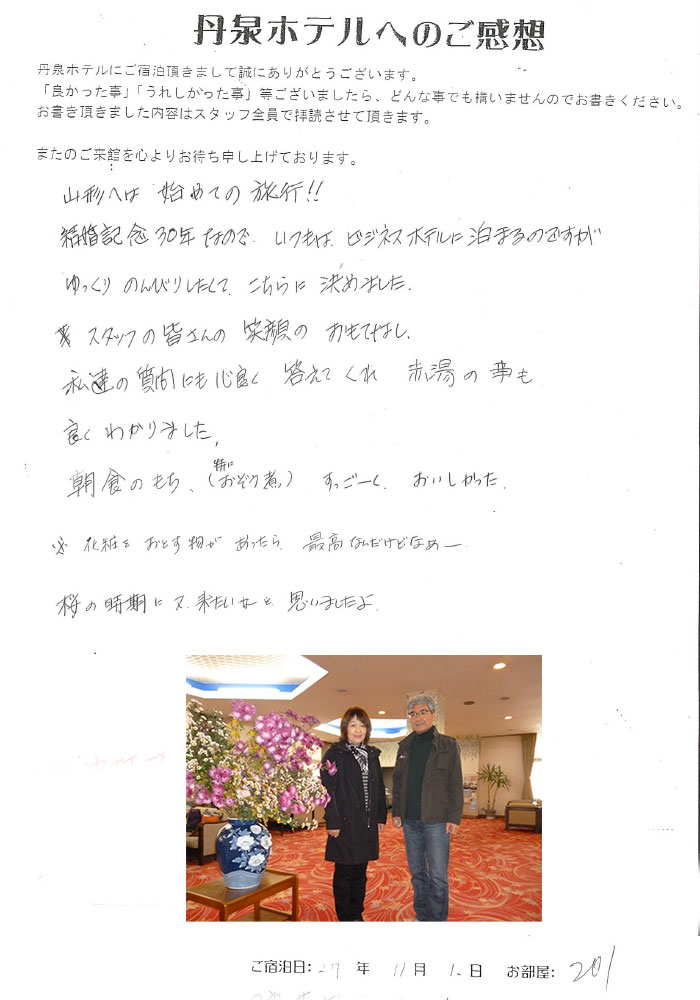 丹泉ホテルへのご感想
丹泉ホテルにご宿泊頂きまして誠にありがとうございます。
「良かった事」「うれしかった事」等ございましたら、どんな事でも構いませんのでお書きください。
お書き頂きました内容はスタッフ全員で拝読させて頂きます。
またのご来館を心よりお待ち申し上げております。
山形へは 始めての 旅行!!
結婚記念30年なので、いつもは、ビジネスホテルに泊まるのですが
ゆっくり のんびりしたくて、こちらに 決めました.
スタッフの皆さんの 笑顔の おもてなし、
私達の質問にも心良く 答えてくれ 赤湯の事も
良く わかりました。
朝食のもち、(特におぞう煮) すっごーく、おいしかった.
※ 化粧を おとす物が あったら、最高なんだけどなぁー
桜の時期に又、来たいなと 思いましたよ.
ご宿泊日: 27 年 11 月 日 お部屋: 201